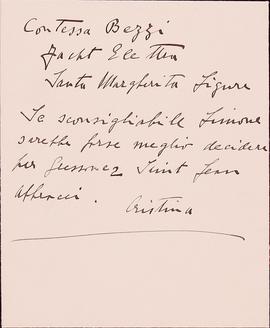 Contessa Bezzi
Yacht Elettra
Santa Margherita Ligure
Se sconsigliabile Limone
sarebbe forse meglio decidere
per Gressoney Saint Jean
Abbracci.
Cristina